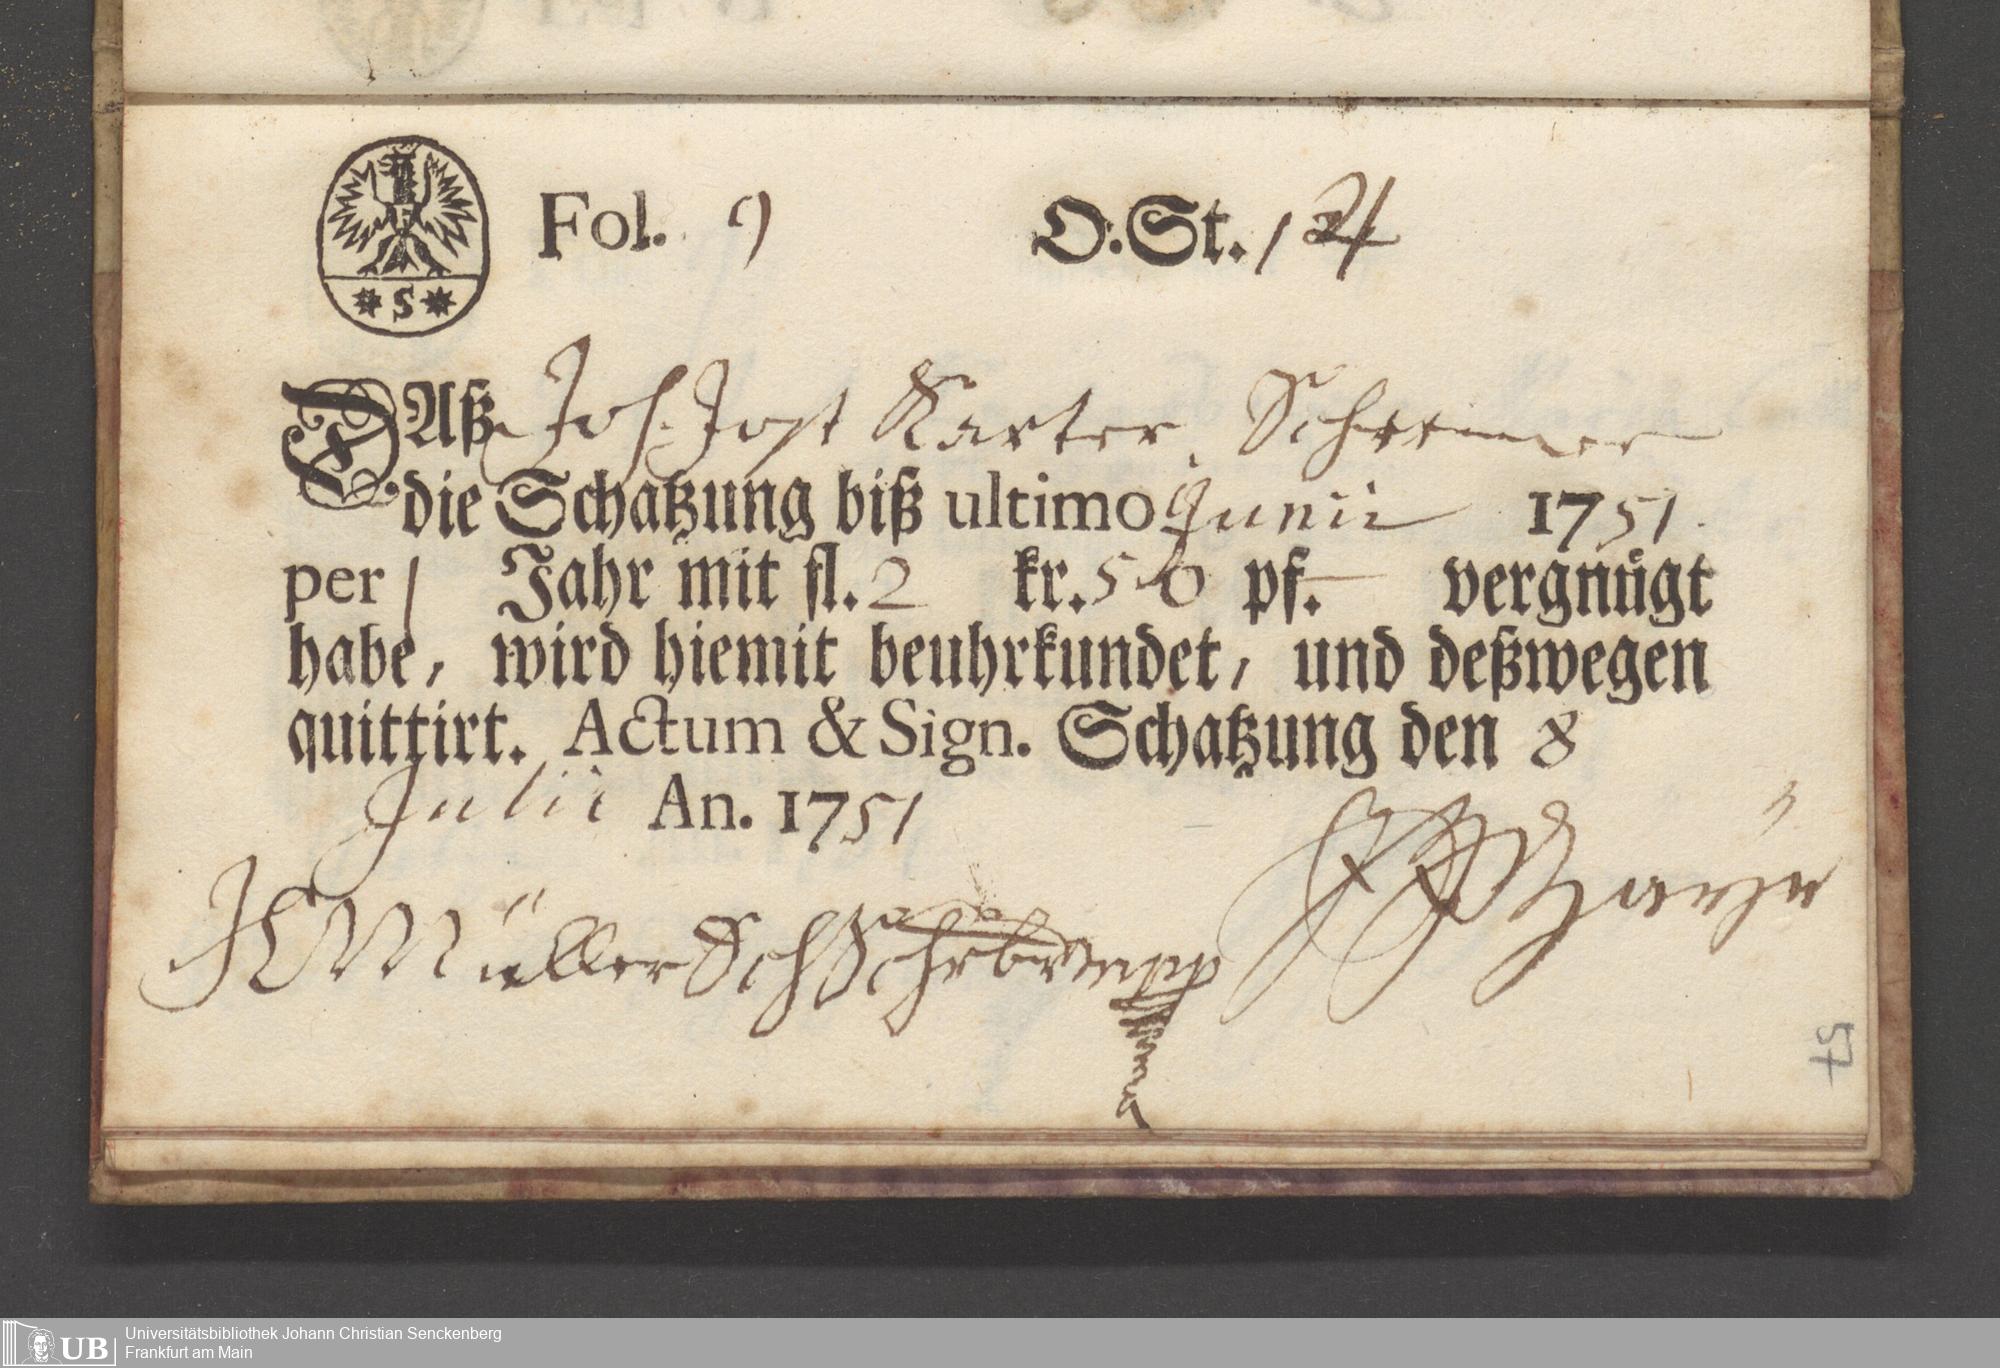 Fol. 9 O. St. 124
*S*
DAß Joh. Jost Karter, Schreiner
die Schatzung biß ultimo Junii 1751.
per 1 Jahr mit fl. 2 kr. 50 pf. — vergnügt
habe, wird hiemit beuhrkundet, und deßwegen
quittirt. Actum & Sign. Schatzung den 8
Julii An. 1751
JC Müller Sch Schrbr mpp
57
Universitätsbibliothek Johann Christian Senckenberg
UB Frankfurt am Main